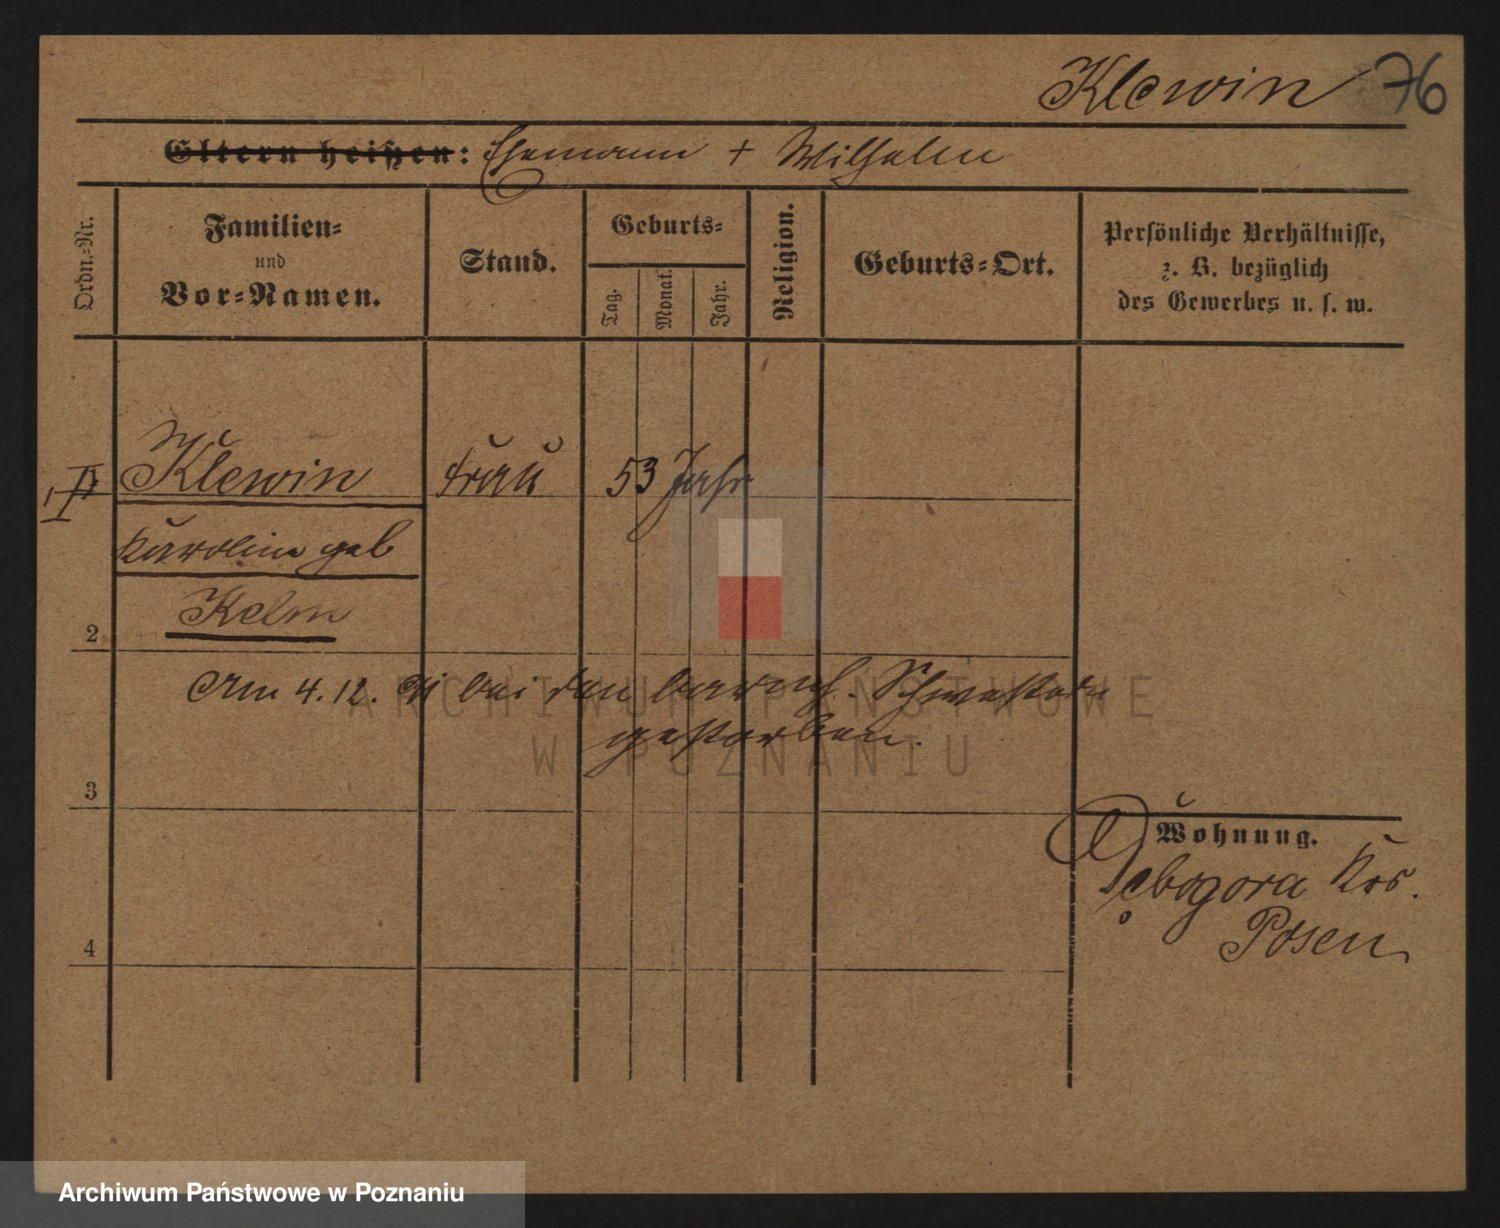 Klewin 76
Eltern heißen: Ehemann + Wilhelm
Ordn.-Nr.
Familien-
und
Vor-Namen.
Stand.
Geburts-
Tag.
Monat.
Jahr.
Religion.
Geburts-Ort.
Persönliche Verhältnisse,
z. B. bezüglich
des Gewerbes u. s. w.
Klewin Frau 53 Jahr
Karoline geb
Kelm
2
Am 4. 12. bei den barmh. Schwestern
gestorben.
3
Wohnung.
Debogora Krs.
Posen
4
ARCHIWUM PAŃSTWOWE
W POZNANIU
Archiwum Państwowe w Poznaniu